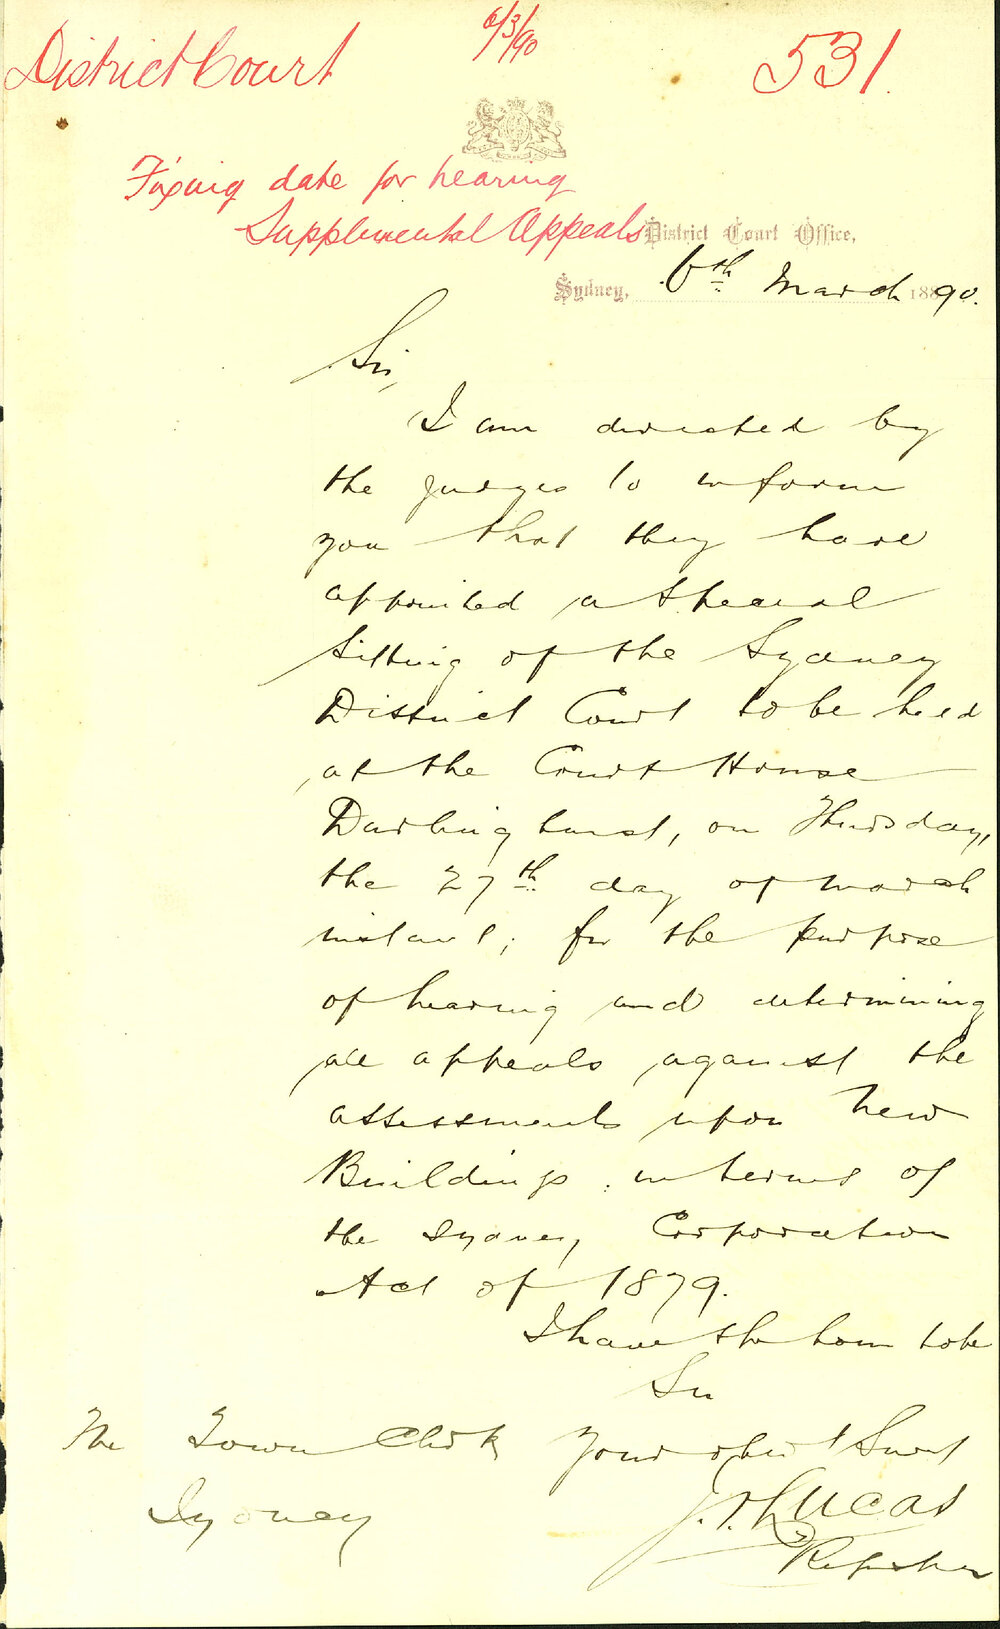 District Court
6/3/90
531.
Fixing date for hearing
Supplimental Appeals
District Court Office,
Sydney, 6th March 1890.
Sir,
I am directed by
the judges to inform
you that they have
appointed a special
sitting of the Sydney
District Court to be held
at the Court House
Darlinghurst, on Thursday,
the 27th day of March
instant; for the purpose
of hearing and determining
all appeals against the
assessments upon New
Buildings in terms of
the Sydney Corporation
Act of 1879.
I have the honor to be
Sir
Your obedt Servt
J. Lucas
Registrar
The Town Clerk
Sydney